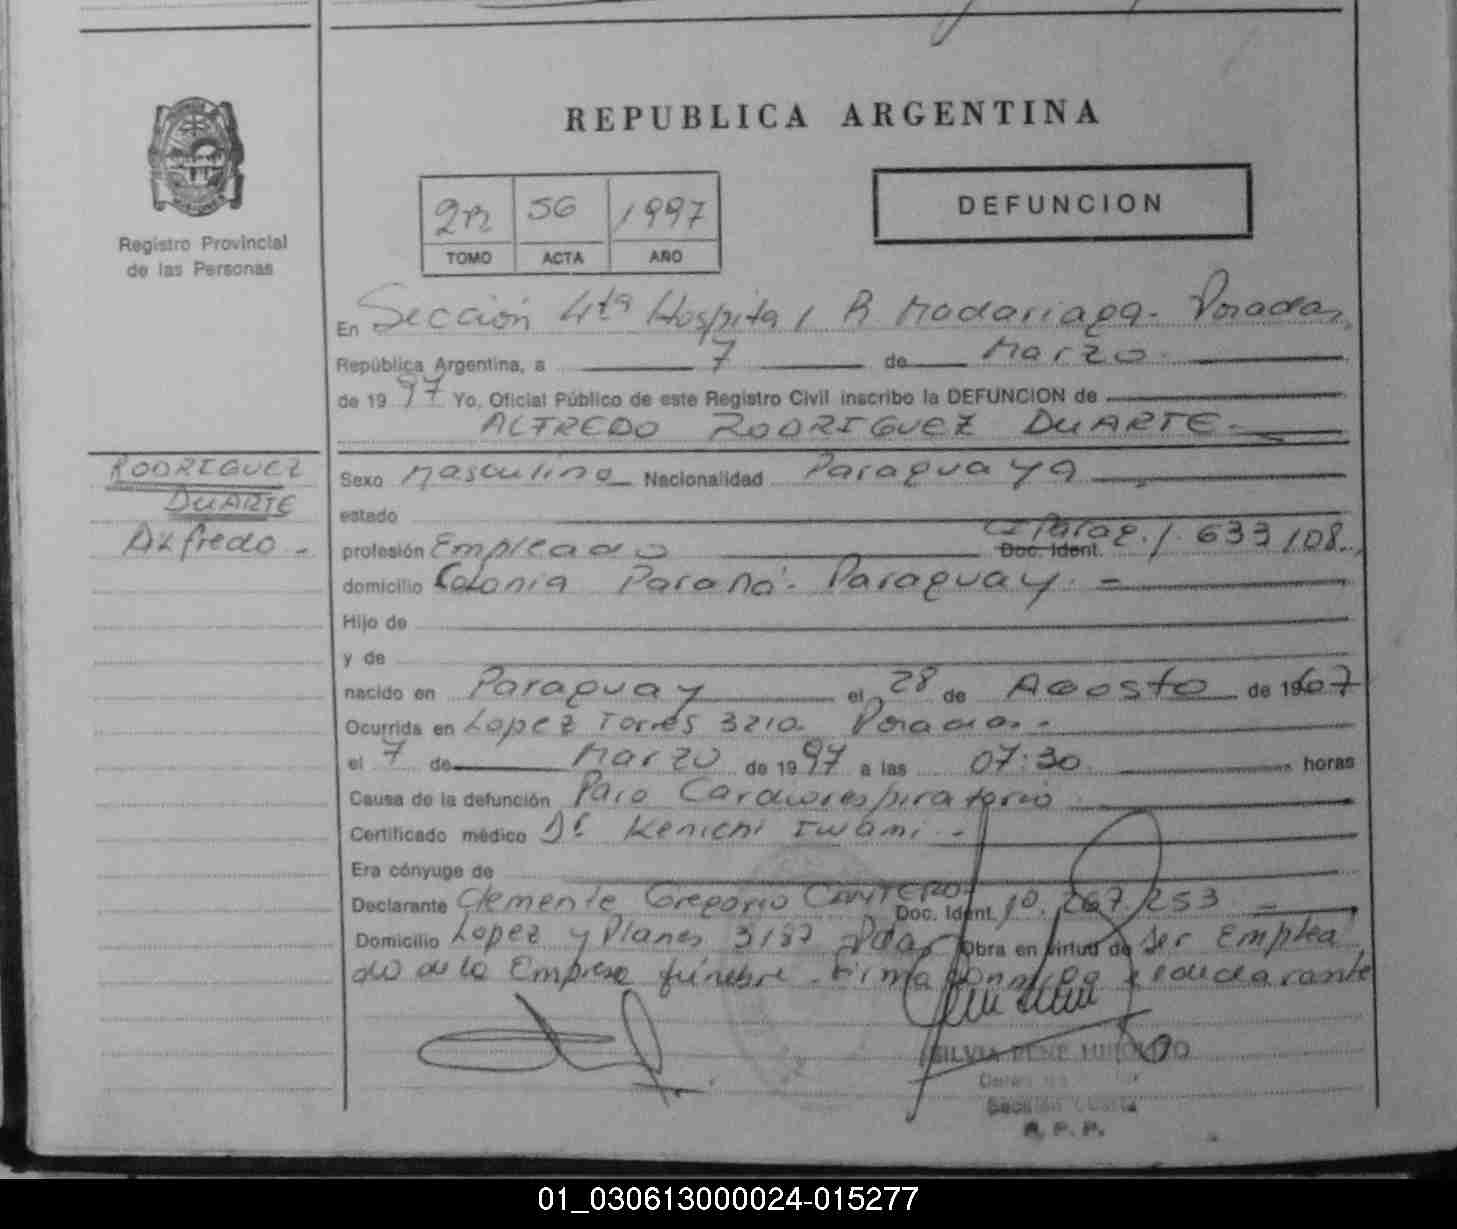 REPUBLICA ARGENTINA
DEFUNCION
56 1997
TOMO ACTA AÑO
Registro Provincial
de las Personas
En Sección 4ta Hospital R Madariaga - Posadas
República Argentina, a 7 de Marzo
de 1997 Yo, Oficial Público de este Registro Civil inscribo la DEFUNCION de
ALFREDO RODRIGUEZ DUARTE
RODRIGUEZ
DUARTE
Alfredo
Sexo Masculino Nacionalidad Paraguaya
estado
profesión Empleado Doc. Ident. CI Parag. 1.633.108
domicilio Colonia Paraná - Paraguay
Hijo de
y de
nacido en Paraguay el 28 de Agosto de 1967
Ocurrida en Lopez Torres 3210 Posadas
el 7 de Marzo de 1997 a las 07:30 horas
Causa de la defunción Paro Cardiorespiratorio
Certificado médico Dr Kenichi Iwami
Era cónyuge de
Declarante Clemente Gregorio CANTERO Doc. Ident. 10.267.253
Domicilio Lopez y Planes 3187 Pdas Obra en virtud de ser emplea
do de la Empresa fúnebre - Firma conmigo el declarante
SILVIA
Sección Cuarta
R. P. P.
01_030613000024-015277